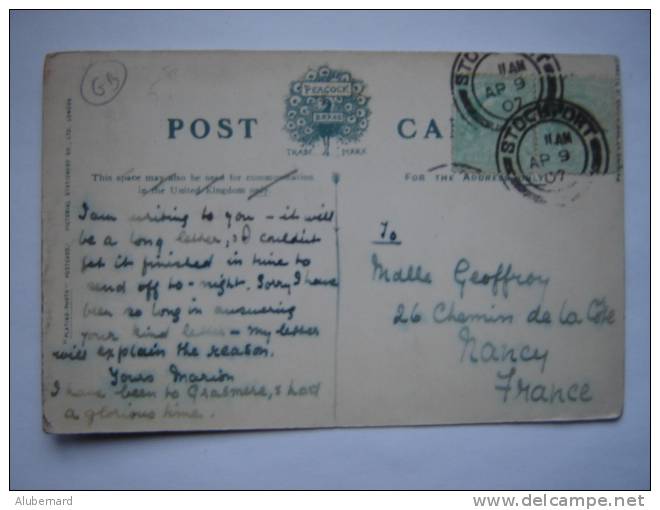 GB
POST CA
PEACOCK
BRAND
TRADE MARK
This space may also be used for communication
in the United Kingdom only.
FOR THE ADDRESS ONLY
STOCKPORT
11 AM
AP 9
07
STOCKPORT
11 AM
AP 9
07
I am writing to you – it will
be a long letter, & I couldn't
get it finished in time to
send off to-night. Sorry I have
been so long in answering
your kind letter – my letter
will explain the reason.
Yours Marion
I have been to Grasmere, & had
a glorious time.
To
Mdlle Geoffroy
26 Chemin de la Côte
Nancy
France
PICTORIAL STATIONERY CO. LTD. LONDON
POSTCARD
Alubernard
www.delcampe.net